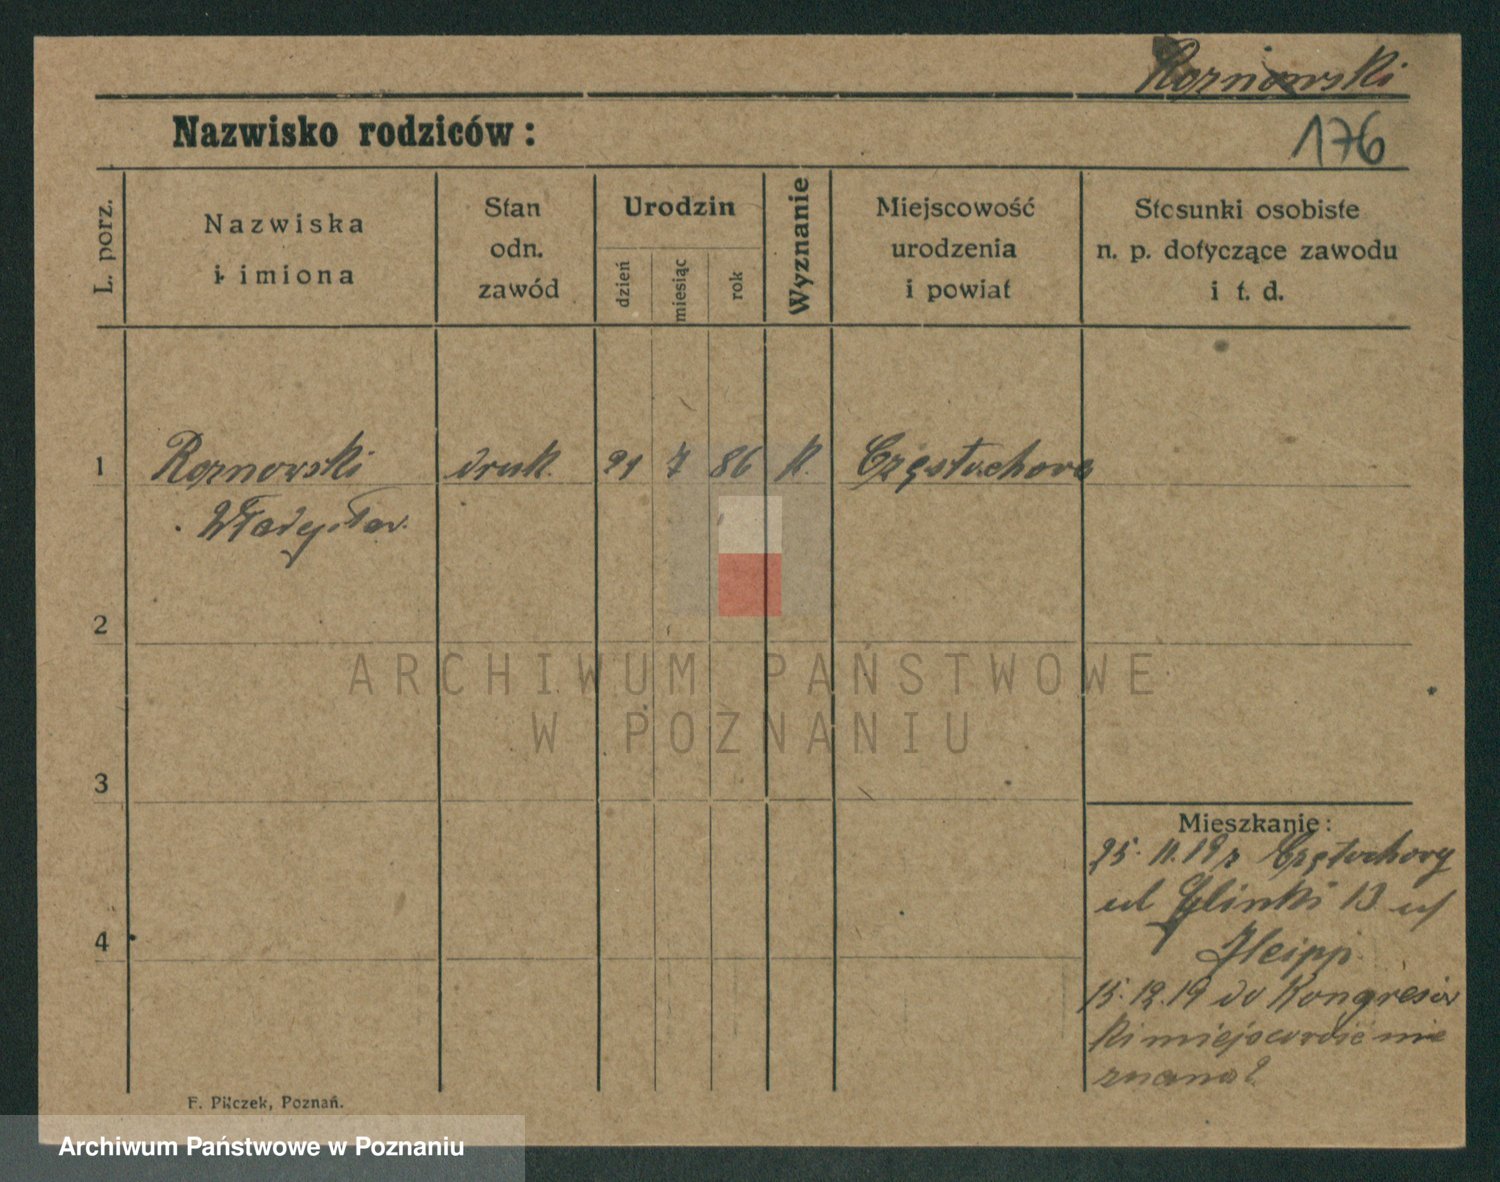 Rornowski
Nazwisko rodziców:
176
L. porz.
Nazwiska
i imiona
Stan
odn.
zawód
Urodzin
dzień
miesiąc
rok
Wyznanie
Miejscowość
urodzenia
i powiat
Stosunki osobiste
n. p. dotyczące zawodu
i t. d.
1 Rornowski druk. 21 7 86 K. Częstochowa
Władysław.
2
3
4
ARCHIWUM PAŃSTWOWE
W POZNANIU
Mieszkanie:
25. 11. 19 z
ul Glinki 13 u/
15. 12. 19 do Kongresów
ki miejscowość nie
znana?
F. Pilczek, Poznań.
Archiwum Państwowe w Poznaniu